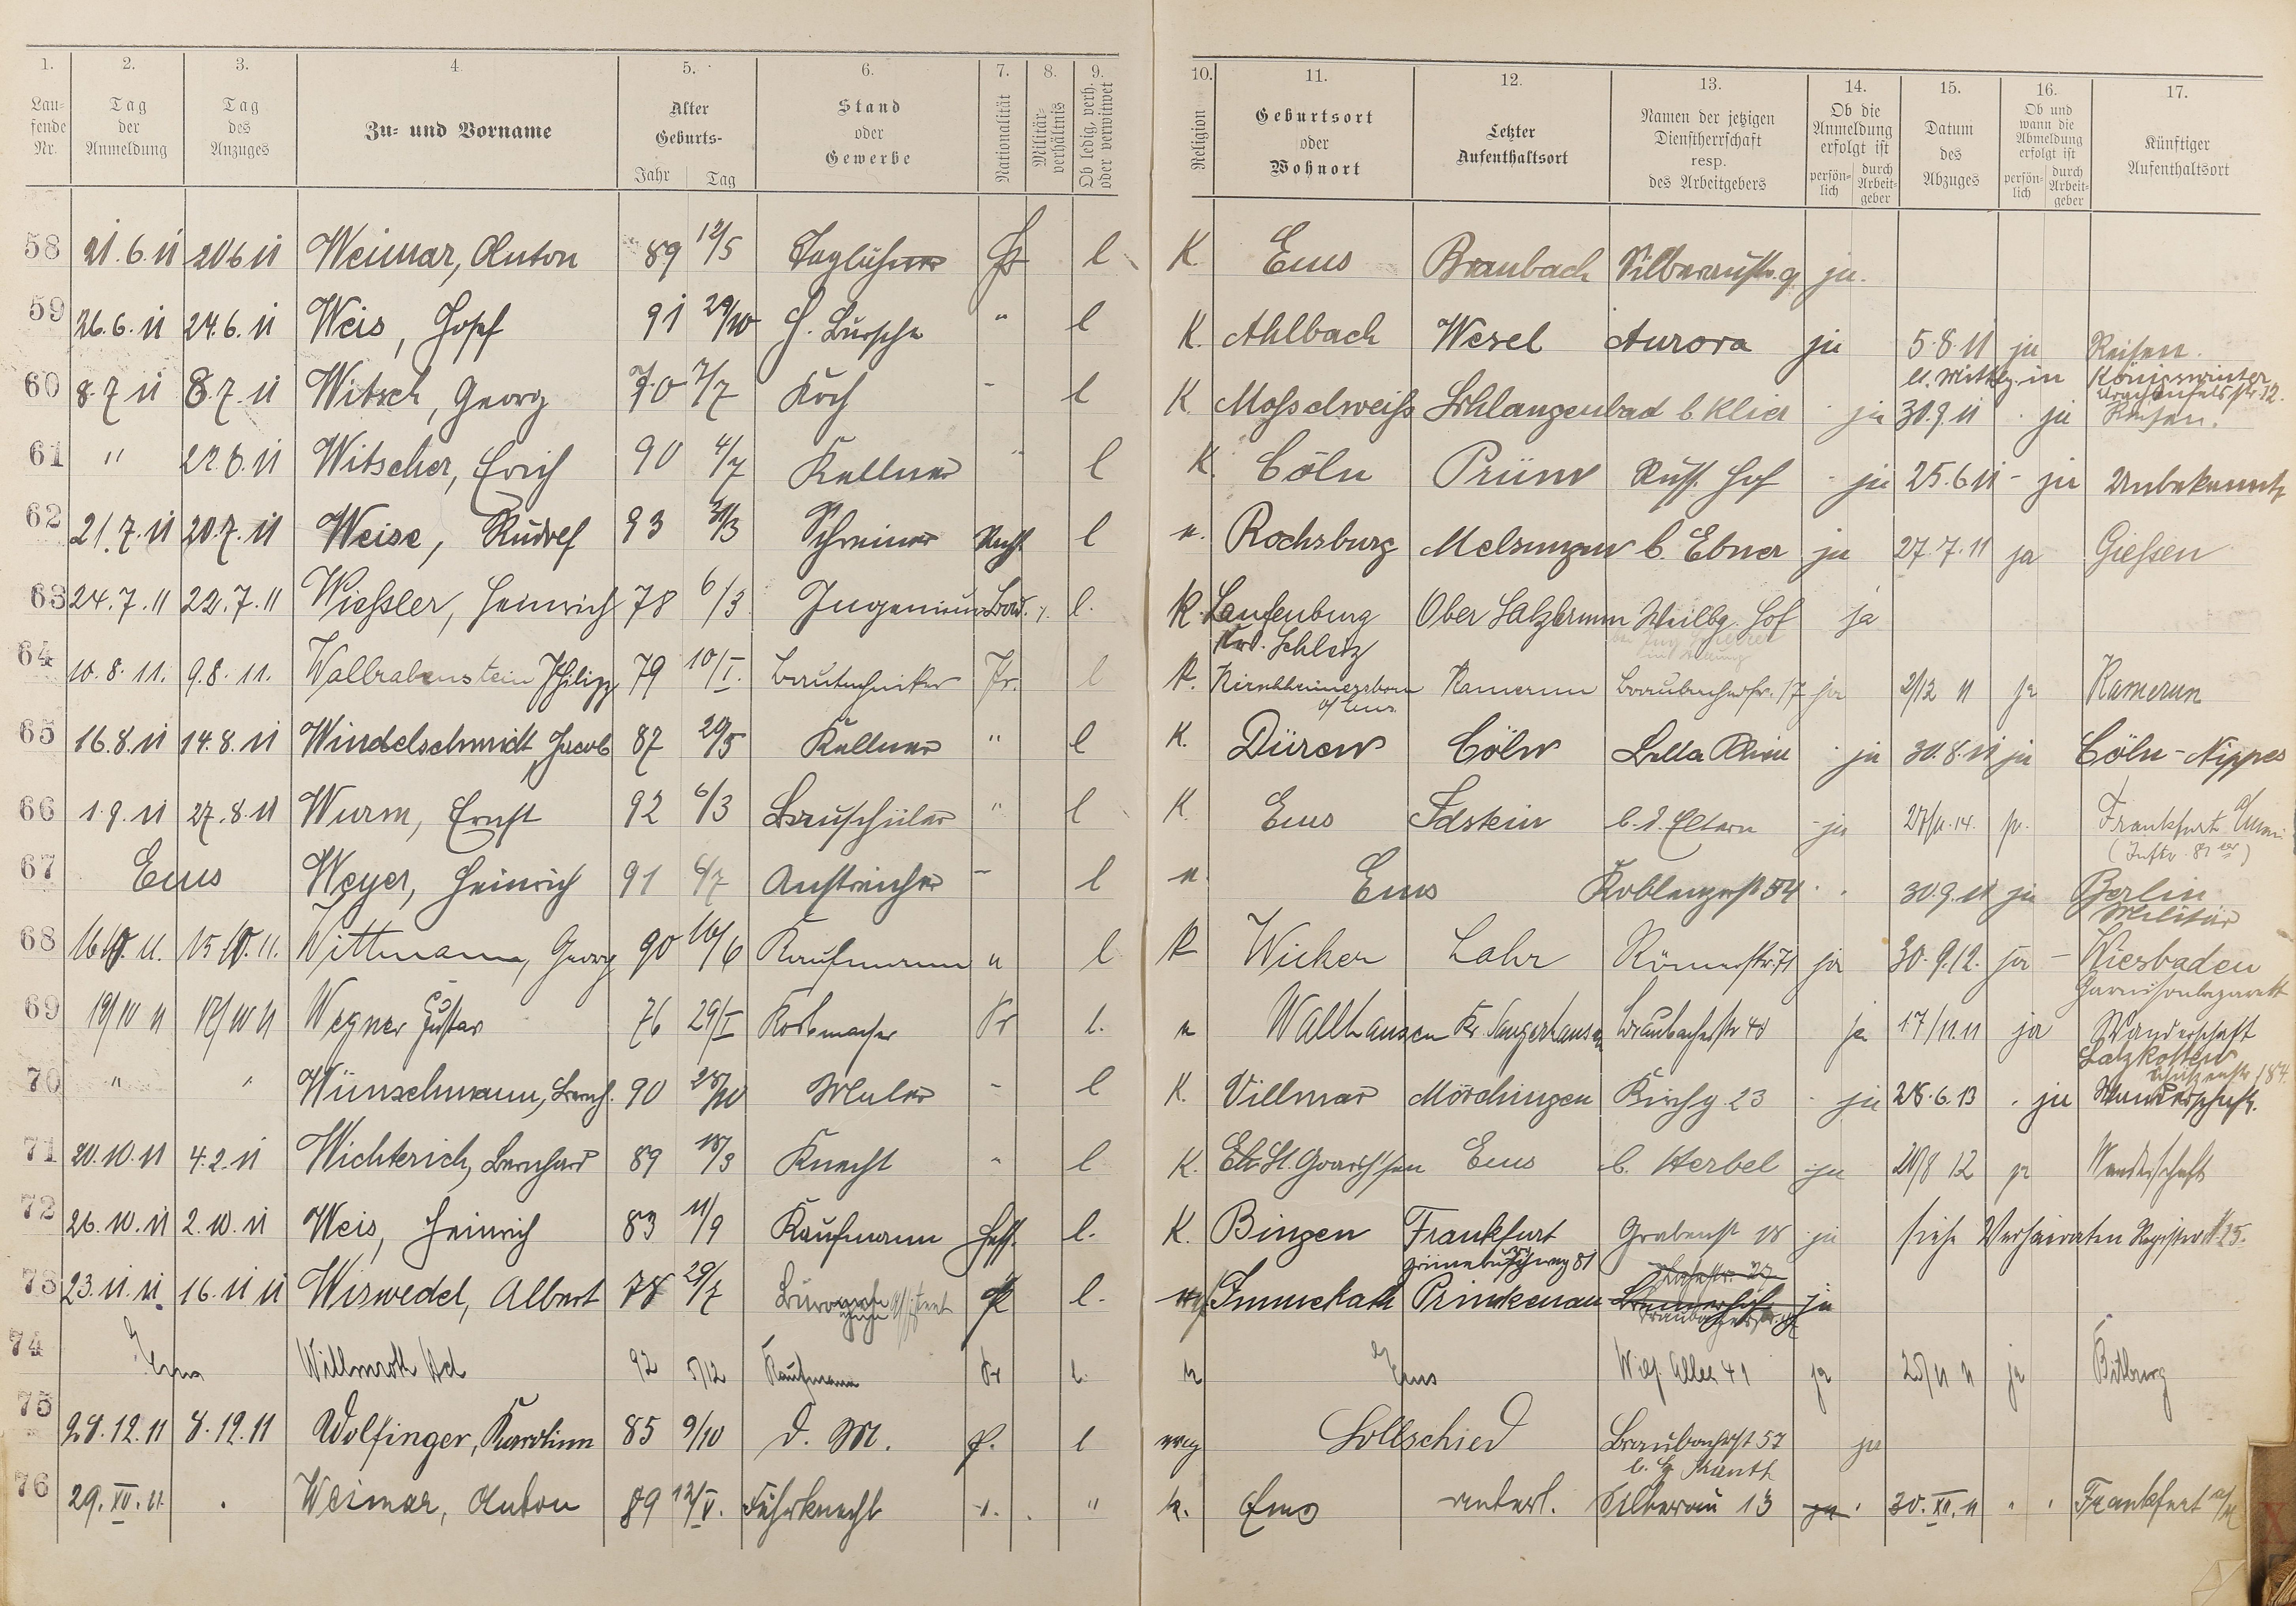 1. 2. 3. 4. 5. 6. 7. 8. 9. 10. 11. 12. 13. 14. 15. 16. 17.
Lau-
fende
Nr.
Tag
der
Anmeldung
Tag
des
Anzuges
Zu- und Vorname
Alter
Geburts-
Jahr Tag
Stand
oder
Gewerbe
Nationalität
Militär-
verhältnis
Ob ledig, verh.
oder verwitwet
Religion
Geburtsort
oder
Wohnort
Letzter
Aufenthaltsort
Namen der jetzigen
Dienstherrschaft
resp.
des Arbeitgebers
Ob die
Anmeldung
erfolgt ist
persön-
lich
durch
Arbeit-
geber
Datum
des
Abzuges
Ob und
wann die
Abmeldung
erfolgt ist
persön-
lich
durch
Arbeit-
geber
Künftiger
Aufenthaltsort
58 21.6.11 20.6.11 Weimar, Anton 89 12/5 Taglöhner Pr l K Ems Braubach Silberaustr. 9 ja.
59 26.6.11 24.6.11 Weis, Josef 91 29/10 H. Bursche " l K. Ahlbach Wesel Aurora ja 5.8.11 ja Reisen.
lt. Mittlg. in Königswinter
Drachenfelsstr. 12.
60 8.7.11 8.7.11 Witsch, Georg 90 7/7 Koch - l K. Mosselweiß Schlangenbad b Klier - ja 30.9.11 . ja Reisen.
61 " 22.6.11 Witscher, Erich 90 4/7 Kellner " l K. Cöln Prüm Russ. Hof - ja 25.6.11 - ja Unbekannt
62 21.7.11 20.7.11 Weise, Rudolf 93 31/3 Schreiner l e. Rochsburg Melsungen b. Ebner ja 27.7.11 ja Gießen
63 24.7.11 22.7.11 Wießler, Heinrich 78 6/3 Ingenieur Bad. l. K. Laufenburg Ober Salzbrunn Weilbg. Hof ja
Schleiz
64 10.8.11. 9.8.11. Wallrabenstein Philipp 79 10/I. Bautechniker Pr. l K. Kamerun Braubacherstr. 17 ja 2/12 11 ja Kamerun
65 16.8.11 14.8.11 Windelschmidt, Jacob 87 29/5 Kellner " l K. Düren Cöln Bella Riva - ja 30.8.11 ja Cöln-Nippes
66 1.9.11 27.8.11 Wurm, Ernst 92 6/3 Bauschüler " l K. Ems Idstein b. d. Eltern - ja 27/11.14. ja. Frankfurt a/Main
(Inftr. 81er)
67 Ems Weyer, Heinrich 91 6/7 Anstreicher - l e. Ems Koblenzerst 54 . . 30.9.11 ja Berlin
Militär
68 16.10.11. 15.10.11. Wittmann, Georg 90 16/6 Kaufmann " l K Wicker Lahr Römerstr. 71 ja 30.9.12. ja - Wiesbaden
Garnisonlazarett
69 19/10 11 17/10 11 Wegner Gustav 76 29/I Korbmacher Pr l. e Wallhausen Kr. Sangerhausen Braubacherstr 40 ja 17/11.11 ja Wanderschaft
70 " " Wünschmann, Bernh. 90 28/10 Maler - l K. Villmar Mörchingen Kirchg. 23 - ja 28.6.13 . ja Wanderschaft.
71 20.10.11 4.2.11 Wichterich, Bernhard 89 18/3 Knecht " l K. St. Goarshsen Ems b. Herbel ja 20/8 12 ja Wanderschaft
72 26.10.11 2.10.11 Weis, Heinrich 83 11/9 Kaufmann Hess. l. K. Bingen Frankfurt Grabenst 18 ja siehe Verheiraten Register N 25.
73 23.11.11. 16.11.11 Wiswedel, Albert 78 29/7 l. Immekath Primkenau ja
74 Ems Willmroth Ad 92 5/12 Kaufmann Pr l. Ems Wilh. Allee 41 ja 25/11 11 ja Bitburg
75 28.12.11 8.12.11 Wolfinger, Karoline 85 9/10 D. M. P. l evg Lollschied Braubacherst 57 ja
76 29.XII.11. . Weimar, Anton 89 12/V. Fuhrknecht ". " k. Ems unterl. Silberau 13 ja . 30.XII.11 " " Frankfurt a/M